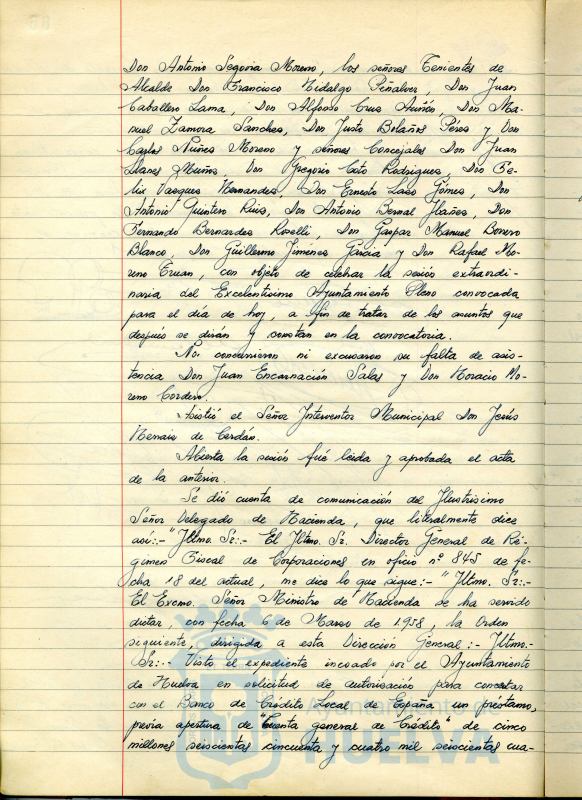 Don Antonio Segovia Moreno, los señores Tenientes de
Alcalde Don Francisco Hidalgo Peñalver, Don Juan
Caballero Lama, Don Alfonso Cruz Auñón, Don Ma-
nuel Zamora Sanchez, Don Justo Bolaños Pérez y Don
Carlos Núñez Moreno y señores Concejales Don Juan
Llanes Muñoz Don Gregorio Coto Rodriguez, Don Fe-
lix Vazquez Hernandez, Don Ernesto Lazo Gómez, Don
Antonio Quintero Ruiz, Don Antonio Bernal Ibañez, Don
Fernando Bernardez Roselli, Don Gaspar Manuel Borrero
Blanco, Don Guillermo Jiménez Garcia y Don Rafael Mo-
reno Truan, con objeto de celebrar la sesión extraordi-
naria del Excelentísimo Ayuntamiento Pleno convocada
para el día de hoy, a fin de tratar de los asuntos que
después se dirán y constan en la convocatoria.
No concurrieron ni excusaron su falta de asis-
tencia Don Juan Encarnación Salas y Don Horacio Mo-
reno Cordero.
Asistió el Señor Interventor Municipal Don Jesús
de Cerdán.
Abierta la sesión fué leida y aprobada el acta
de la anterior.
Se dió cuenta de comunicación del Ilustrísimo
Señor Delegado de Hacienda, que literalmente dice
asi:- "Iltmo. Sr:- El Iltmo. Sr. Director General de Ré-
gimen Fiscal de Corporaciones en oficio nº 845 de fe-
cha 18 del actual, me dice lo que sigue:- "Iltmo. Sr.:-
El Excmo. Señor Ministro de Hacienda se ha servido
dictar, con fecha 6 de Marzo de 1958, la Orden
siguiente, dirigida a esta Dirección General:- Iltmo.-
Sr:- Visto el expediente incoado por el Ayuntamiento
de Huelva en solicitud de autorización para concertar
con el Banco de Crédito Local de España un préstamo,
previa apertura de "Cuenta general de Crédito" de cinco
millones seiscientas cincuenta y cuatro mil seiscientas cua-
Ayuntamiento de
HUELVA